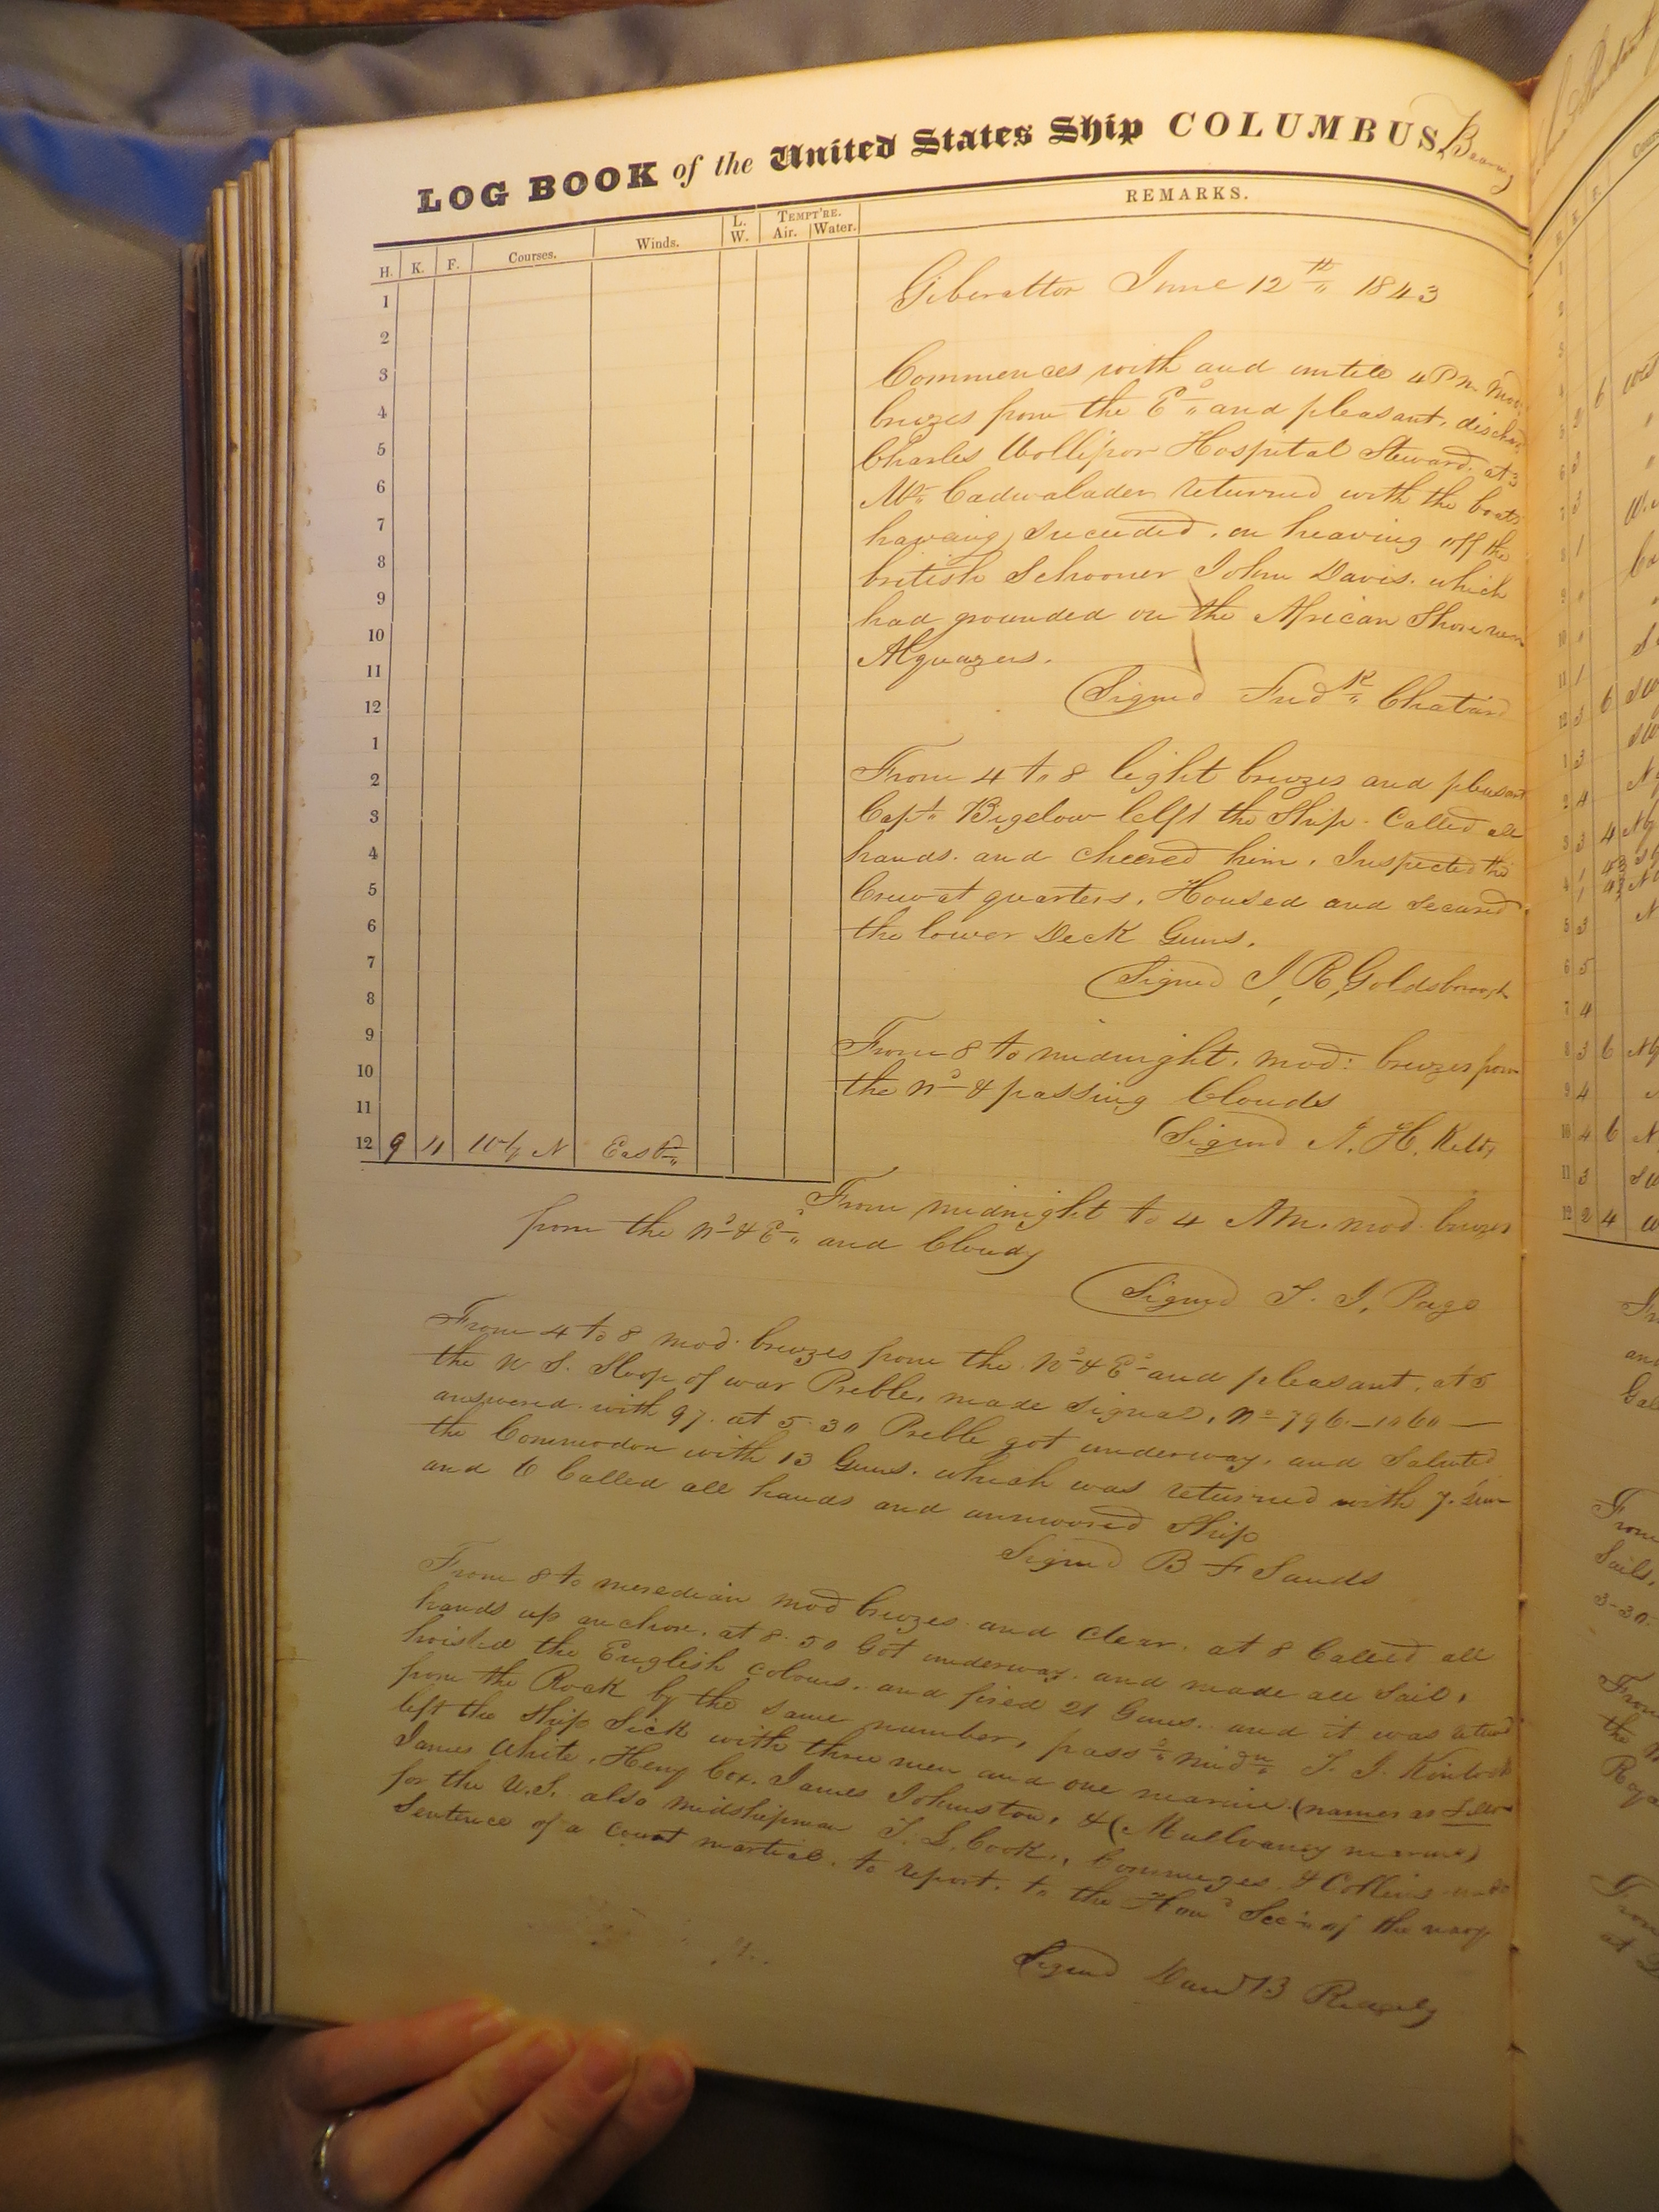 LOG BOOK of the United States Ship COLUMBUS,
REMARKS.
H. K. F. Courses. Winds. L. W. TEMPT'RE. Air. Water.
Giberaltor June 12th 1843
1
2
3
4
5
6
7
8
9
10
11
12
1
2
3
4
5
6
7
8
9
10
11
12 9 11 East
Commences with and untill 4 Pm. Mod
breezes from the Ed and pleasant, dischar
Charles Hospital Steward, at 3
Mr. Cadwalader returned with the boats
having succeeded, on heaving off the
british Schooner John Davis. which
had grounded on the African Shore near
Alguazers.
Signed Fredk Chatard
From 4 to 8 light breezes and pleasant
Capt. Bigelow left the Ship. Called all
hands. and cheered him, Inspected the
Crew at quarters, Housed and secured
the lower Deck Guns.
Signed J, R, Goldsborough
From 8 to midnight, mod: breezes from
the Nd & passing Clouds
Signed A. H. Kelty
From midnight to 4 AM. mod. breezes
from the Nd & Ed and Cloudy
Signed T. J. Page
From 4 to 8 mod. breezes from the Nd & Ed and pleasant, at 5
the U S. Sloop of war Preble, made signal, No 796-1060 —
answered with 97. at 5.30 Preble got underway, and Saluted
the Commodore with 13 Guns. which was returned with 7. Gun
and 6 Called all hands and unmoored Ship
Signed B F Sands
From 8 to meredian mod breezes and clear. at 8 Called all
hands up anchor, at 8.50 Got underway. and made all Sail,
hoisted the English colours. and fired 21 Guns. and it was
from the Rock by the same number, passd midn T. J. Kinlock
left the Ship Sick with three men and one marine (names as
James White, Heny Cox. James Johnston, & (Mullvaney marine)
for the U.S. also midshipman T. L. Cook., & Collins
Sentence of a Court martial, to report. to the Hond Sec. of the navy
Signed Danl B Ridgely